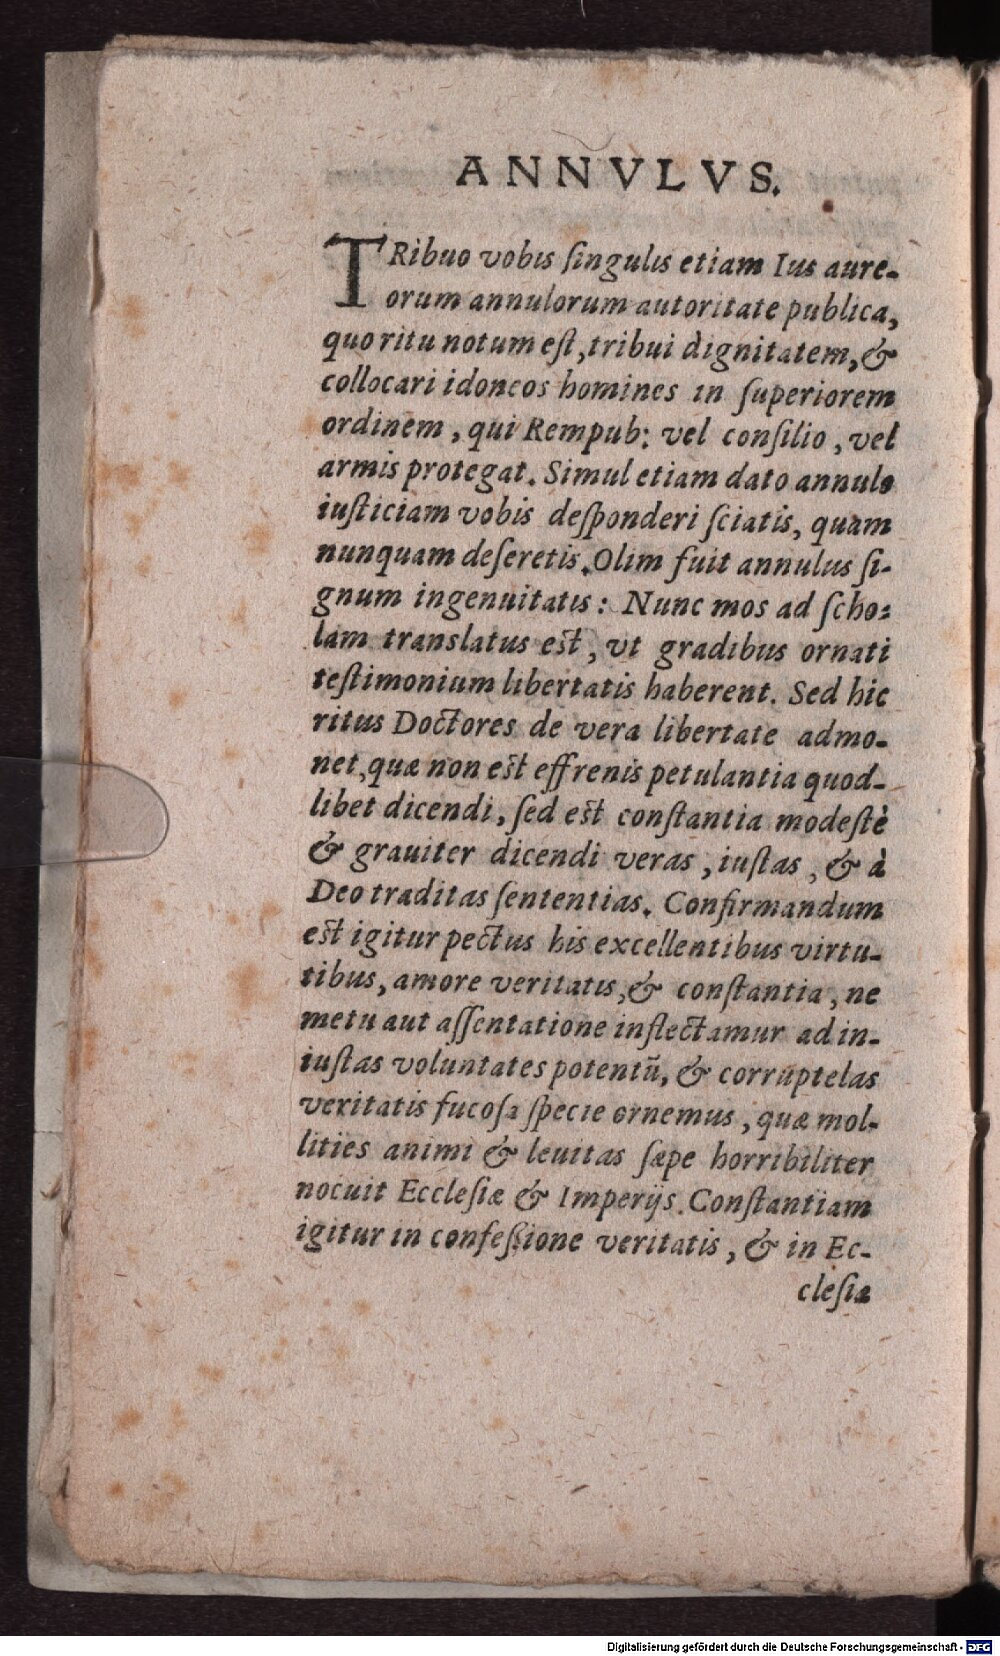 ANNVLVS.
TRibuo vobis ſingulis etiam Ius aure-
orum annulorum autoritate publica,
quo ritu notum eſt, tribui dignitatem, &
collocari idoneos homines in ſuperiorem
ordinem, qui Rempub: vel conſilio, vel
armis protegat. Simul etiam dato annulo
iuſticiam vobis deſponderi ſciatis, quam
nunquam deſeretis. Olim fuit annulus ſi-
gnum ingenuitatis: Nunc mos ad ſcho-
lam translatus eſt, vt gradibus ornati
teſtimonium libertatis haberent. Sed hic
ritus Doctores de vera libertate admo-
net, quæ non eſt effrenis petulantia quod-
libet dicendi, ſed eſt conſtantia modeſtè
& grauiter dicendi veras, iuſtas, & à
Deo traditas ſententias. Confirmandum
eſt igitur pectus his excellentibus virtu-
tibus, amore veritatis, & conſtantia, ne
metu aut aſſentatione inflectamur ad in-
iuſtas voluntates potentũ, & corruptelas
veritatis fucoſa ſpecie ornemus, quæ mol-
lities animi & leuitas ſæpe horribiliter
nocuit Eccleſiæ & Imperijs. Conſtantiam
igitur in confeſsione veritatis, & in Ec-
cleſiæ
Digitalisierung gefördert durch die Deutsche Forschungsgemeinschaft - DFG